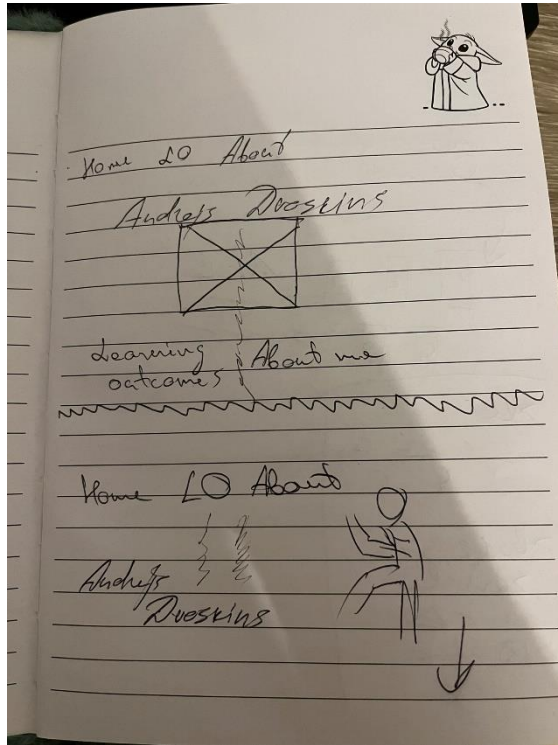 Home LO About
Andrejs Dvoskins
Learning About me
outcomes
Home LO About
Andrejs
Dvoskins